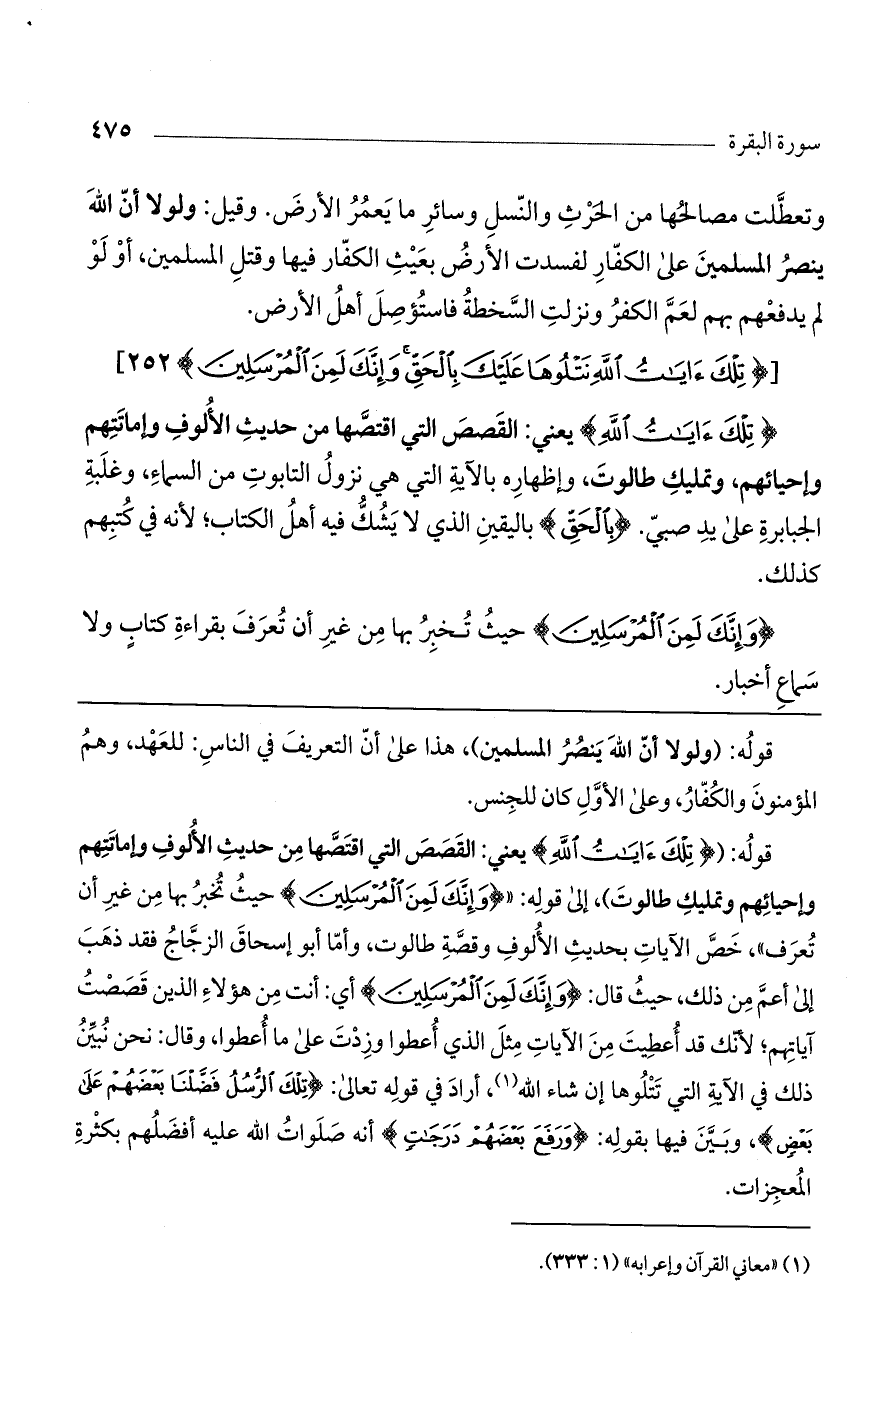 سورة البقرة ٤٧٥
وتعطَّلت مصالحُها من الحَرْثِ والنّسلِ وسائرِ ما يَعمُرُ الأرضَ. وقيل: ولولا أنّ اللهَ
ينصرُ المسلمينَ علىٰ الكفّارِ لفسدت الأرضُ بعَيْثِ الكفّار فيها وقتلِ المسلمين، أوْ لَوْ
لم يدفعْهم بهم لعَمَّ الكفرُ ونزلتِ السَّخطةُ فاستُؤصِلَ أهلُ الأرض.
[﴿ تِلْكَ ءَايَـٰتُ ٱللَّهِ نَتْلُوهَا عَلَيْكَ بِٱلْحَقِّ ۚ وَإِنَّكَ لَمِنَ ٱلْمُرْسَلِينَ ﴾ ٢٥٢]
﴿ تِلْكَ ءَايَـٰتُ ٱللَّهِ ﴾ يعني: القَصصَ التي اقتصَّها من حديثِ الأُلوفِ وإماتَتِهم
وإحيائهم، وتمليكِ طالوتَ، وإظهارِه بالآيةِ التي هي نزولُ التابوتِ من السماءِ، وغلَبةِ
الجبابرةِ علىٰ يدِ صبيّ. ﴿بِٱلْحَقِّ ﴾ باليقينِ الذي لا يَشُكُّ فيه أهلُ الكتاب؛ لأنه في كُتبِهم
كذلك.
﴿وَإِنَّكَ لَمِنَ ٱلْمُرْسَلِينَ﴾ حيثُ تُـخبِرُ بها مِن غيرِ أن تُعرَفَ بقراءةِ كتابٍ ولا
سَماعِ أخبار.
قولُه: (ولولا أنّ اللهَ يَنصُرُ المسلمين)، هذا علىٰ أنّ التعريفَ في الناس: للعَهْد، وهمُ
المؤمنونَ والكُفّارُ، وعلىٰ الأوَّلِ كان للجِنس.
قولُه: (﴿ تِلْكَ ءَايَـٰتُ ٱللَّهِ﴾ يعني: القَصَصَ التي اقتَصَّها مِن حديثِ الأُلوفِ وإماتَتِهم
وإحيائِهم وتمليكِ طالوتَ)، إلىٰ قولِه: «﴿وَإِنَّكَ لَمِنَ ٱلْمُرْسَلِينَ ﴾ حيثُ تُخبرُ بها مِن غيرِ أن
تُعرَف»، خَصَّ الآياتِ بحديثِ الأُلوفِ وقصَّةِ طالوت، وأمّا أبو إسحاقَ الزجّاجُ فقد ذهَبَ
إلىٰ أعمَّ مِن ذلك، حيثُ قال: ﴿وَإِنَّكَ لَمِنَ ٱلْمُرْسَلِينَ﴾ أي: أنت مِن هؤلاءِ الذين قَصَصْتُ
آياتِهم؛ لأنّك قد أُعطِيتَ مِنَ الآياتِ مِثلَ الذي أُعطوا وزِدْتَ علىٰ ما أُعطوا، وقال: نحن نُبيِّنُ
ذلك في الآيةِ التي تَتْلُوها إن شاء الله(١)، أرادَ في قولِه تعالىٰ: ﴿تِلْكَ ٱلرُّسُلُ فَضَّلْنَا بَعْضَهُمْ عَلَىٰ
بَعْضٍ ﴾، وبَيَّنَ فيها بقولِه: ﴿وَرَفَعَ بَعْضَهُمْ دَرَجَـٰتٍ ﴾ أنه صَلَواتُ الله عليه أفضَلُهم بكثْرةِ
المُعجِزات.
(١) «معاني القرآن وإعرابه» (١: ٣٣٣).